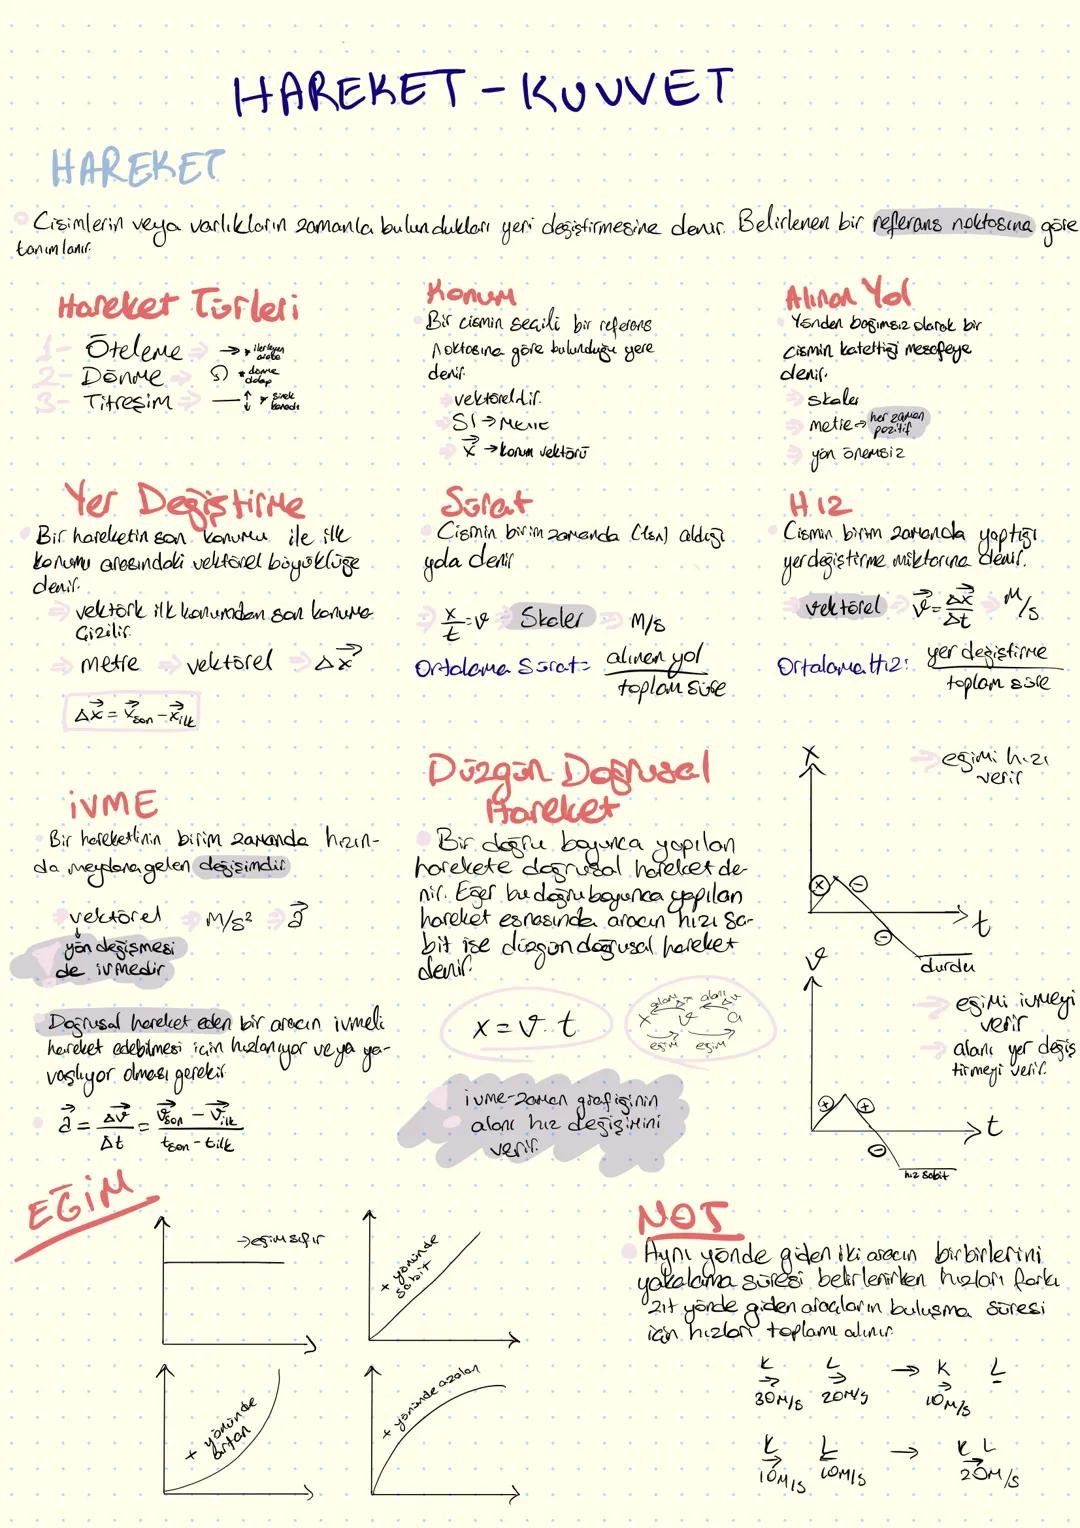 HAREKET - KUVVET
HAREKET
Cisimlerin veya varlıkların zamanla bulundukları yeri değiştirmesine denir. Belirlenen bir referans noktasına göre
tanımlanır.
Hareket Türleri
1- Öteleme → → ilerleyen araba
2- Dönme → dönme dolap
3- Titreşim → sinek kanadı
Konum
Bir cismin seçili bir referans
noktasına göre bulunduğu yere
denir.
vektöreldir.
SI → Metre
x⃗ → konum vektörü
Alınan Yol
Yönden bağımsız olarak bir
cismin katettiği mesafeye
denir.
skaler
metre → her zaman pozitif
yön önemsiz
Yer Değiştirme
Bir hareketin son konumu ile ilk
konumu arasındaki vektörel büyüklüğe
denir.
vektörk ilk konumdan son konuma
çizilir.
metre → vektörel → Δx⃗
Δx⃗ = x⃗son - x⃗ilk
Sürat
Cismin birim zamanda (1sn) aldığı
yola denir
x/t = v Skaler M/s
Ortalama Sürat = alınan yol / toplam süre
Hız
Cismin birim zamanda yaptığı
yerdeğiştirme miktarına denir.
vektörel v⃗ = Δx⃗/Δt → M/s
Ortalama Hız: yer değiştirme / toplam süre
İVME
Bir hareketlinin birim zamanda hızın-
da meydana gelen değişimdir
vektörel → M/s² → a⃗
yön değişmesi
de ivmedir
Doğrusal hareket eden bir aracın ivmeli
hareket edebilmesi için hızlanıyor veya ya-
vaşlıyor olması gerekir
a⃗ = Δv⃗/Δt = (v⃗son - v⃗ilk)/(tson - tilk)
Düzgün Doğrusal
Hareket
Bir doğru boyunca yapılan
harekete doğrusal hareket de-
nir. Eğer bu doğru boyunca yapılan
hareket esnasında aracın hızı sa-
bit ise düzgün doğrusal hareket
denir.
x = v . t
alanı Δx alanı Δv
x v a
eğim eğim
ivme-zaman grafiğinin
alanı hız değişimini
verir.
x
→ eğimi hızı
verir
+ - -
t
durdu
v
→ eğimi ivmeyi
verir
→ alanı yer değiş
tirmeyi verir.
+ + -
t
hız sabit
EĞİM
→ eğim sıfır
+ yönünde
sabit
+ yönünde
artan
+ yönünde azalan
NOT
Aynı yönde giden iki aracın birbirlerini
yakalama süresi belirlenirken hızları farkı
zıt yönde giden araçların buluşma süresi
için hızları toplamı alınır.
K L → K L
30M/s 20M/s 10M/s
K L → K L
10M/s 10M/s 20M/s